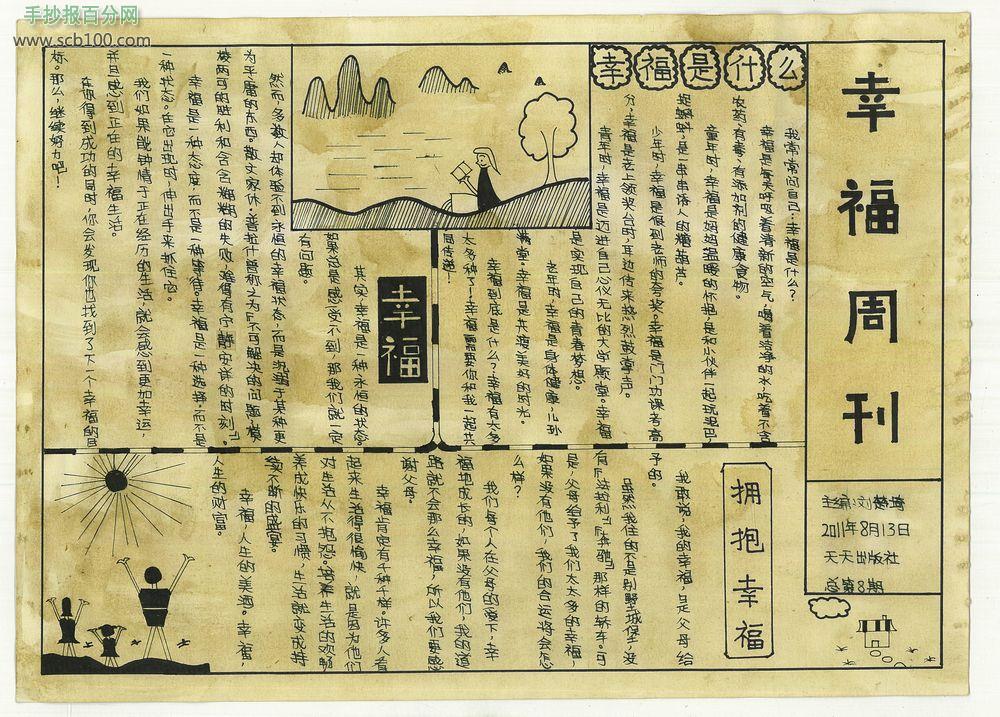 手抄报百分网
www.scb100.com
幸福周刊
主编:刘
2011年8月13日
天天出版社
总第8期
幸福是什么
我常常问自己:幸福是什么?
幸福是每天呼吸着清新的空气,喝着洁净的水,吃着不含
农药,有毒,有添加剂的健康食物。
童年时,幸福是妈妈温暖的怀抱,是和小伙伴一起玩泥巴,
捉蝌蚪,是一串串诱人的糖葫芦。
少年时,幸福是得到老师的夸奖。幸福是门门功课考高
分,幸福是走上领奖台时,耳边传来热烈鼓掌声。
青年时,幸福是迈进自己心仪无比的大学殿堂。幸福
是实现自己的青春梦想。
老年时,幸福是身体健康,儿孙
满堂。幸福是共渡美好的时光。
幸福到底是什么?幸福有太多
太多种了!幸福需要你和我一起共
同传递!
幸福
其实,幸福是一种永恒的状态。
如果总是感觉不到,那我们就一定
有问题。
然而,多数人却体验不到永恒的幸福状态,而是沉溺于某种更
为平庸的东西。散文家休·普拉什曾称之为『不可解决的问题,模
棱两可的胜利和含含糊糊的失败,难得有宁静安详的时刻。』
幸福是一种态度,而不是一种等待;幸福是一种选择,而不是
一种状态。在它出现时,伸出手来抓住它。
我们如果能钟情于正在经历的生活,就会感到更加幸运,
并且感到正在的幸福生活。
在你得到成功的同时,你会发现你也找到了下一个幸福的目
标。那么,继续努力吧!
拥抱幸福
我敢说,我的幸福,是父母给
予的。
虽然我住的不是别墅、城堡,没
有『法拉利』『奔驰』那样的轿车。可
是,父母给予了我们太太多的幸福,
如果没有他们,我们的命运将会怎
么样?
我们每个人在父母的爱下,幸
福地成长的,如果没有他们,我的道
路就不会那么幸福,所以我们要感
谢父母。
幸福肯定有千种千样。许多人看
起来生活得很愉快,就是因为他们
对生活从不抱怨。培养生活的欢畅,
养成快乐的习惯,生活就变成持
续不断的盛宴。
幸福,人生的美酒。幸福,
人生的财富。